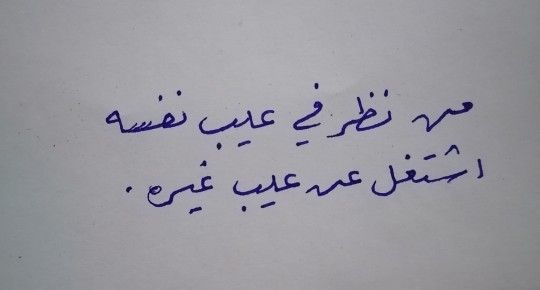 من نظر في عيب نفسه
اشتغل عن عيب غيره.